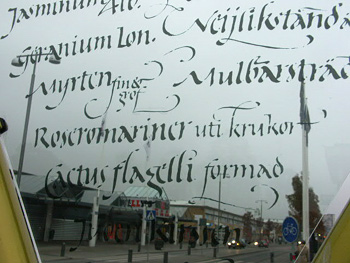 Jasminum
Geranium Lon. Neijlikständ
Myrten fin & grof Mulbärsträd
Roseromariner uti krukor
Cactus flagelli formad